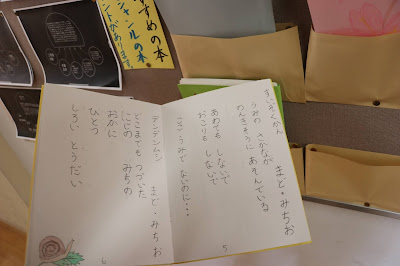 すすめの本
ジャンルの本
ントがあります
すいぞくかん
まど・みちお
うみの さかなが
のんきそうに あそんでいる
あわても しないで
おこりも しないで
ここ うみで ないのに・・・
5
デンデンムシ
まど・みちお
どこまでも つづいた
にじの みちの
おかに
ひとつ
しろい とうだい
6